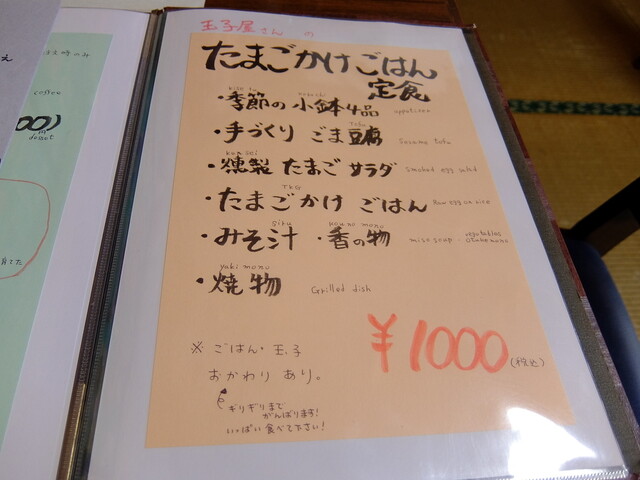 玉子屋さんの
たまごかけごはん
定食
・季節の小鉢4品 appetizers
tofu
・手づくり ごま豆腐 Sesame Tofu
kunsei
・燻製 たまご サラダ Smoked egg salad
TKG
・たまごかけ ごはん Raw egg on rice
siru
・みそ汁 ・香の物 miso soup vegetables
yaki mono
・焼物 Grilled dish
¥1000(税込)
※ ごはん・玉子
おかわり あり。
ギリギリまで
がんばります!
いっぱい 食べて下さい!
coffee
dessert